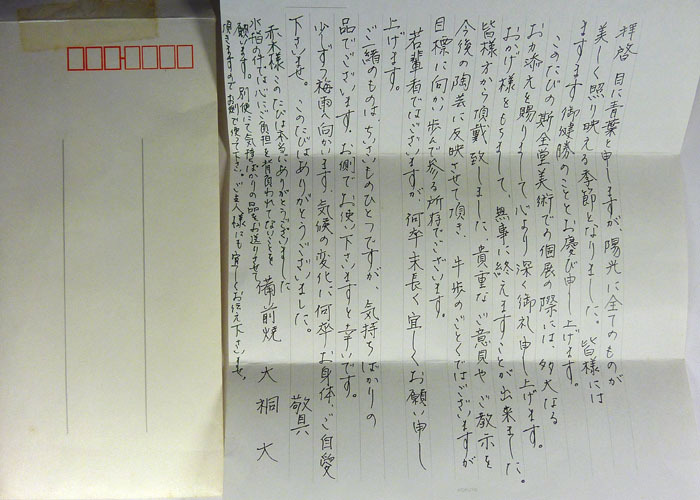 拝啓 目に青葉と申しますが、陽光に全てのものが
美しく照り映える季節となりました。皆様には
ますます御健勝のこととお慶び申し上げます。
このたびの斯全堂美術での個展の際には、多大なる
お力添えを賜りまして、心より深く御礼申し上げます。
おかげ様をもちまして、無事に終えますことが出来ました。
皆様方から頂戴致しました、貴重なご意見やご教示を
今後の陶芸に反映させて頂き、牛歩のごとくではございますが
目標に向かい歩んで参る所存でございます。
若輩者ではございますが、何卒末長く宜しくお願い申し
上げます。
ご一緒のものは、ちいさいものひとつですが、気持ちばかりの
品でございます。お側でお使い下さいますと幸いです。
少しずつ梅雨へ向かいます、気候の変化に何卒お身体、ご自愛
下さいませ。このたびはありがとうございました。
敬具
備前焼 大桐大
赤木様このたびは本当にありがとうございました
水指の件では心にご負担を背負われてないことを
願います。別便にて気持ばかりの品をお送りさせて
頂きますのでお側で使って下さい。ご主人様にも宜しくお伝え下さいませ。